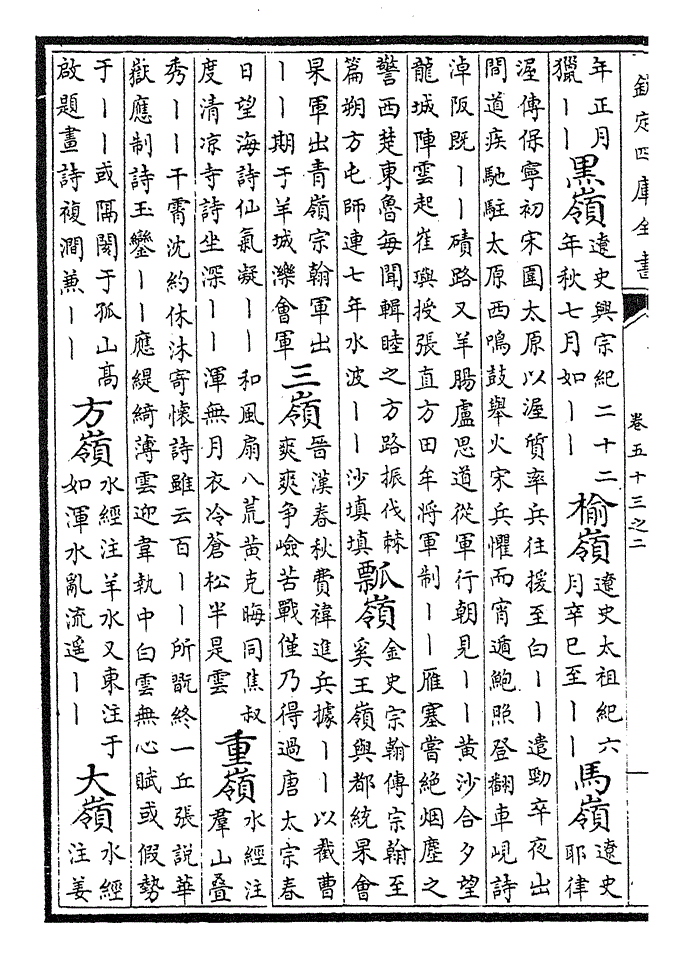 欽定四庫全書
卷五十三之二
年正月
獵丨丨
黑嶺
遼史興宗紀二十二
年秋七月如丨丨
榆嶺
遼史太祖紀六
月辛巳至丨丨
馬嶺
遼史
耶律
渥傳保寧初宋圍太原以渥質率兵往援至白丨丨遣勁卒夜出
間道疾馳駐太原西鳴鼓舉火宋兵懼而宵遁鮑照登翻車峴詩
淖阪既丨丨磧路又羊腸盧思道從軍行朝見丨丨黃沙合夕望
龍城陣雲起崔璵授張直方田牟將軍制丨丨雁塞嘗絕烟塵之
警西楚東魯每聞輯睦之方路振伐棘
篇朔方屯師連七年水波丨丨沙填填
瓢嶺
金史宗翰傳宗翰至
奚王嶺與都統杲會
杲軍出青嶺宗翰軍出
丨丨期于羊城濼會軍
三嶺
晉漢春秋費禕進兵據丨丨以截曹
爽爽争嶮苦戰僅乃得過唐太宗春
日望海詩仙氣凝丨丨和風扇八荒黃克晦同焦叔
度清凉寺詩坐深丨丨渾無月衣冷蒼松半是雲
重嶺
水經注
羣山疊
秀丨丨干霄沈約休沐寄懷詩雖云百丨丨所翫終一丘張說華
嶽應制詩玉鑾丨丨應緹綺薄雲迎韋執中白雲無心賦或假勢
于丨丨或隔閡于孤山高
啟題畫詩複澗兼丨丨
方嶺
水經注羊水又東注于
如渾水亂流逕丨丨
大嶺
水經
注姜